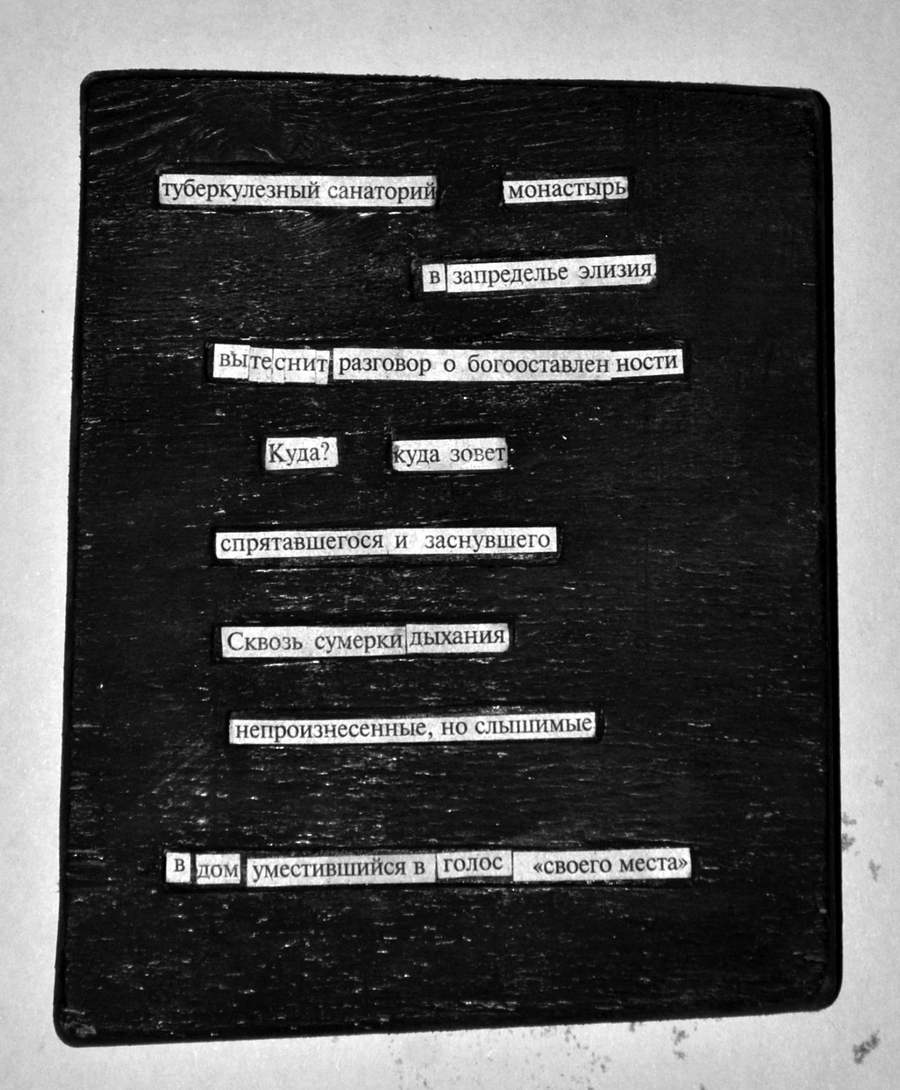 туберкулезный санаторий монастырь
в запределье элизия.
вытеснит разговор о богооставленности
Куда? куда зовет
спрятавшегося и заснувшего
Сквозь сумерки дыхания
непроизнесенные, но слышимые
в дом уместившийся в голос «своего места»